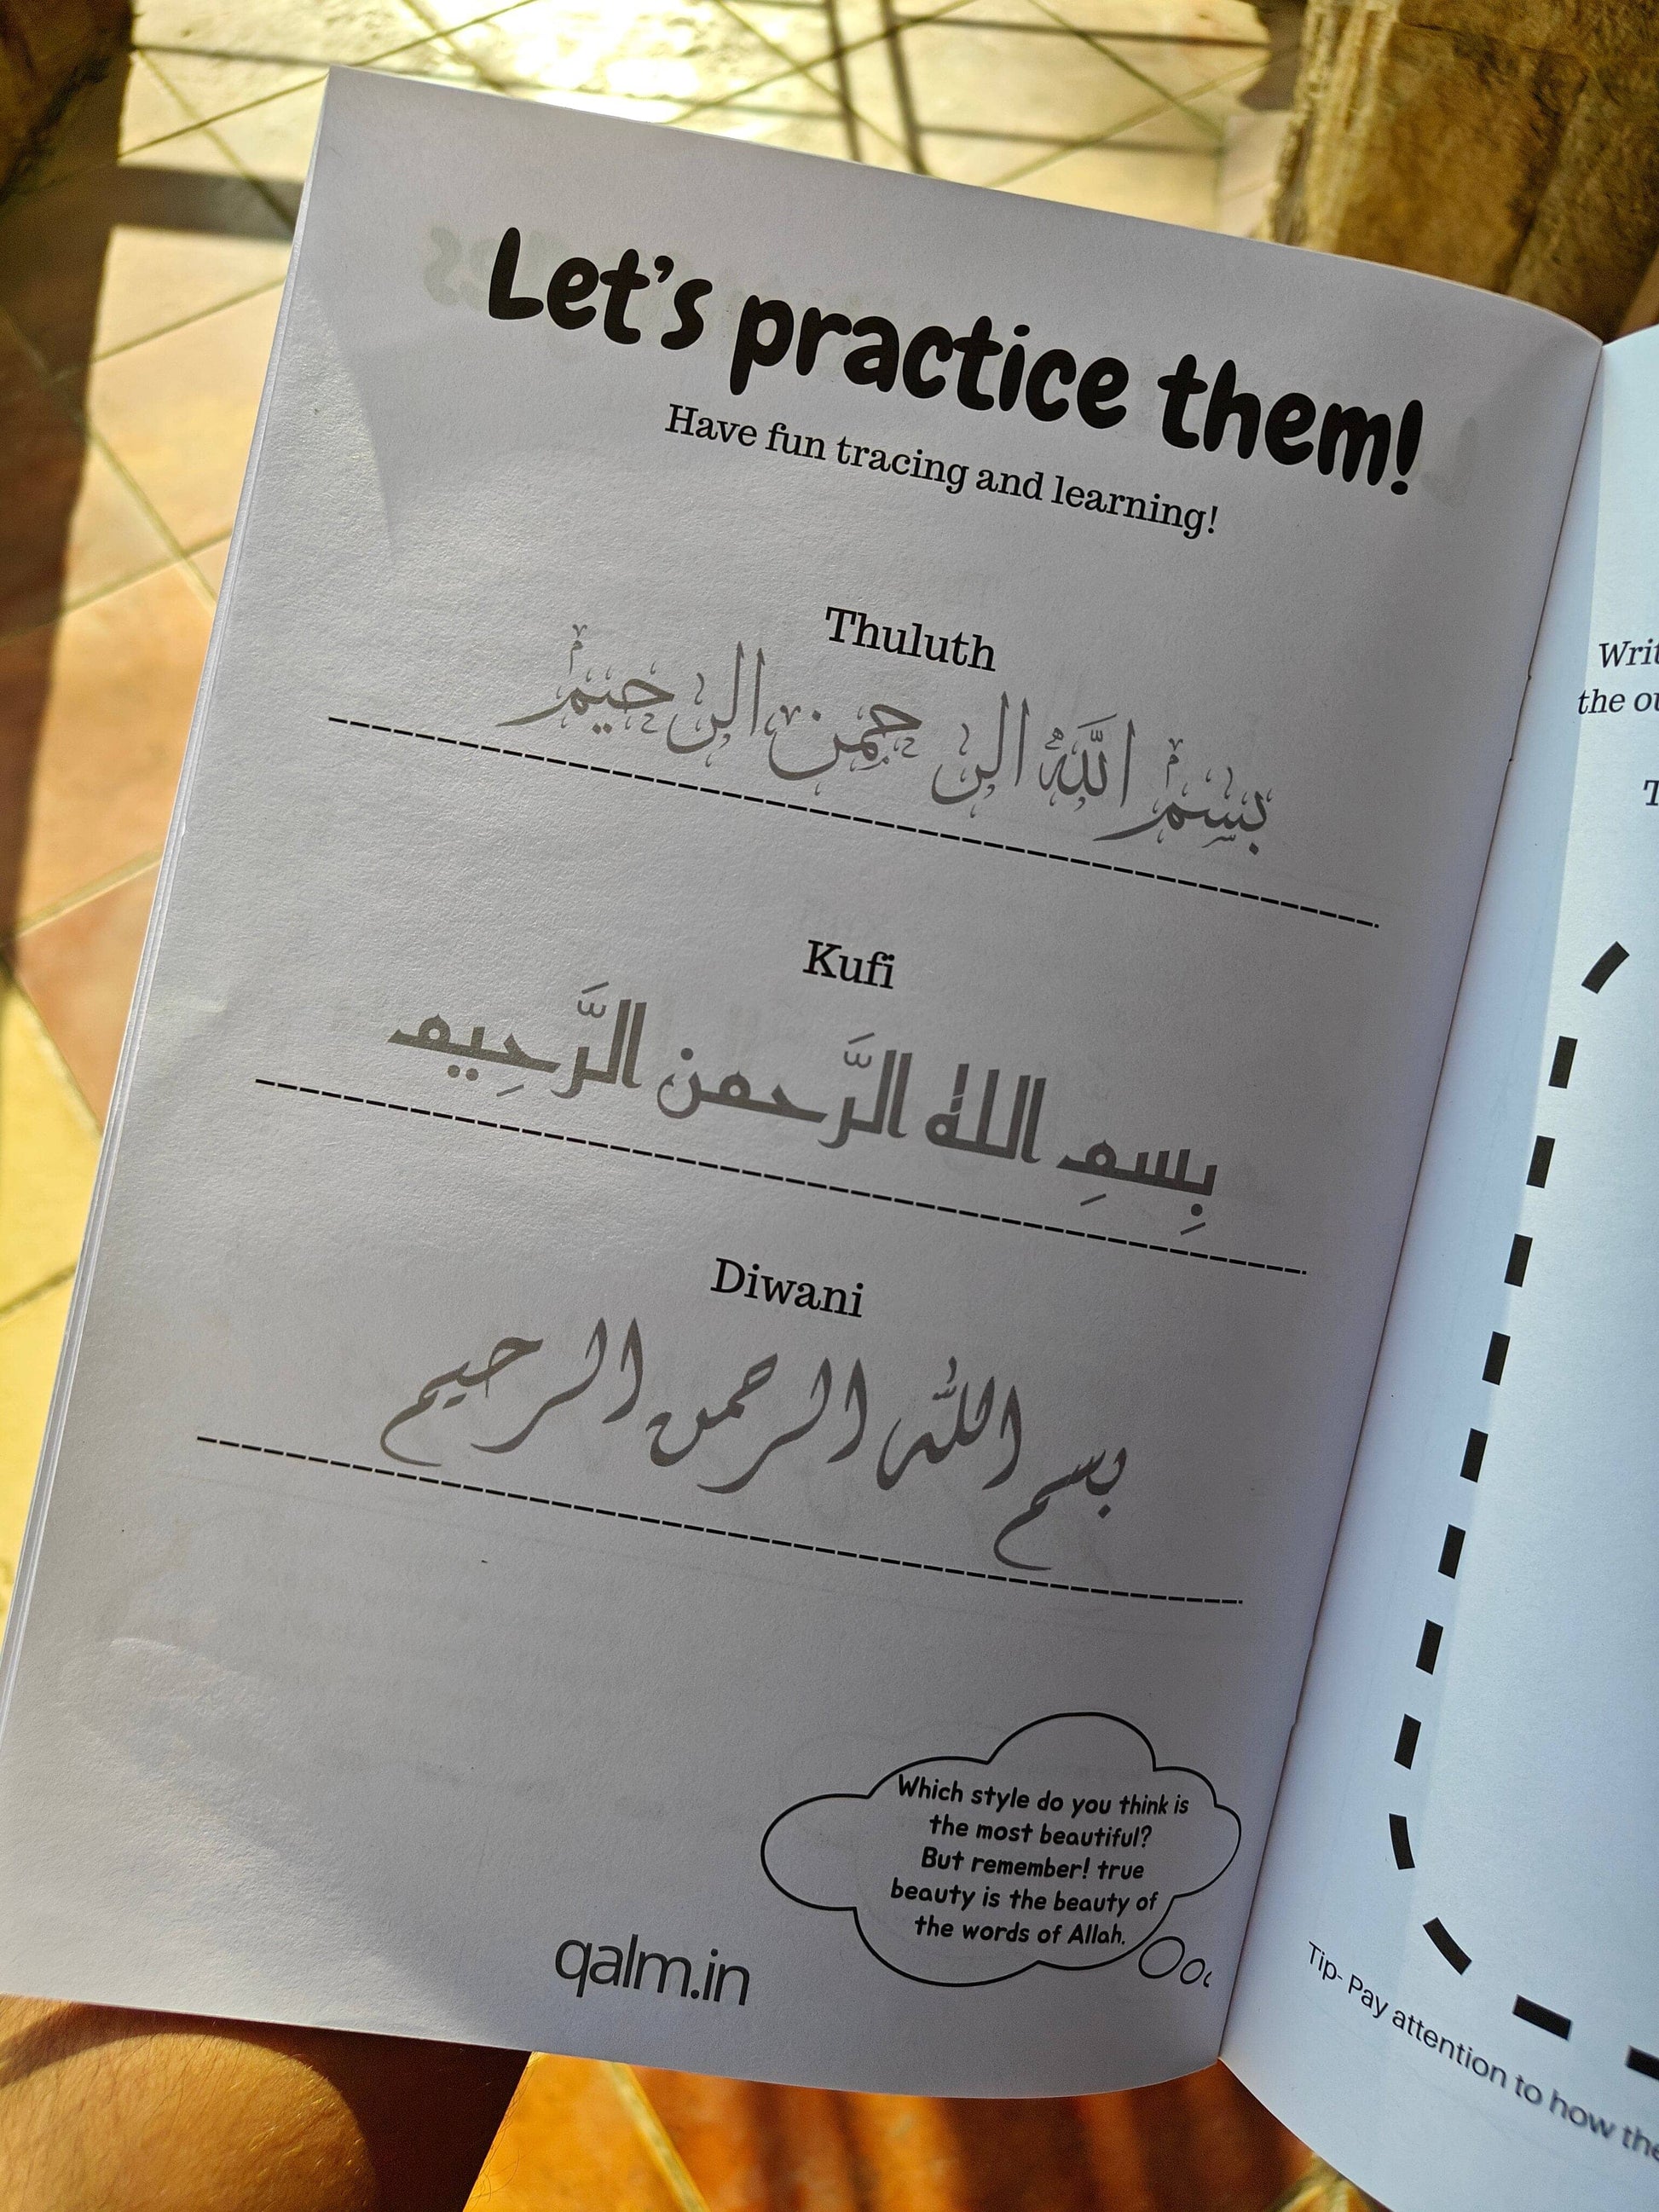 Let's practice them!
Have fun tracing and learning!
Thuluth
بسم اللّٰه الرحمن الرحيم
Kufi
بِسمِ اللهُ الرَّحمن الرَّحِيم
Diwani
بسم اللّٰه الرحمن الرحيم
Which style do you think is
the most beautiful?
But remember! true
beauty is the beauty of
the words of Allah.
qalm.in
the
Tip- Pay attention to how